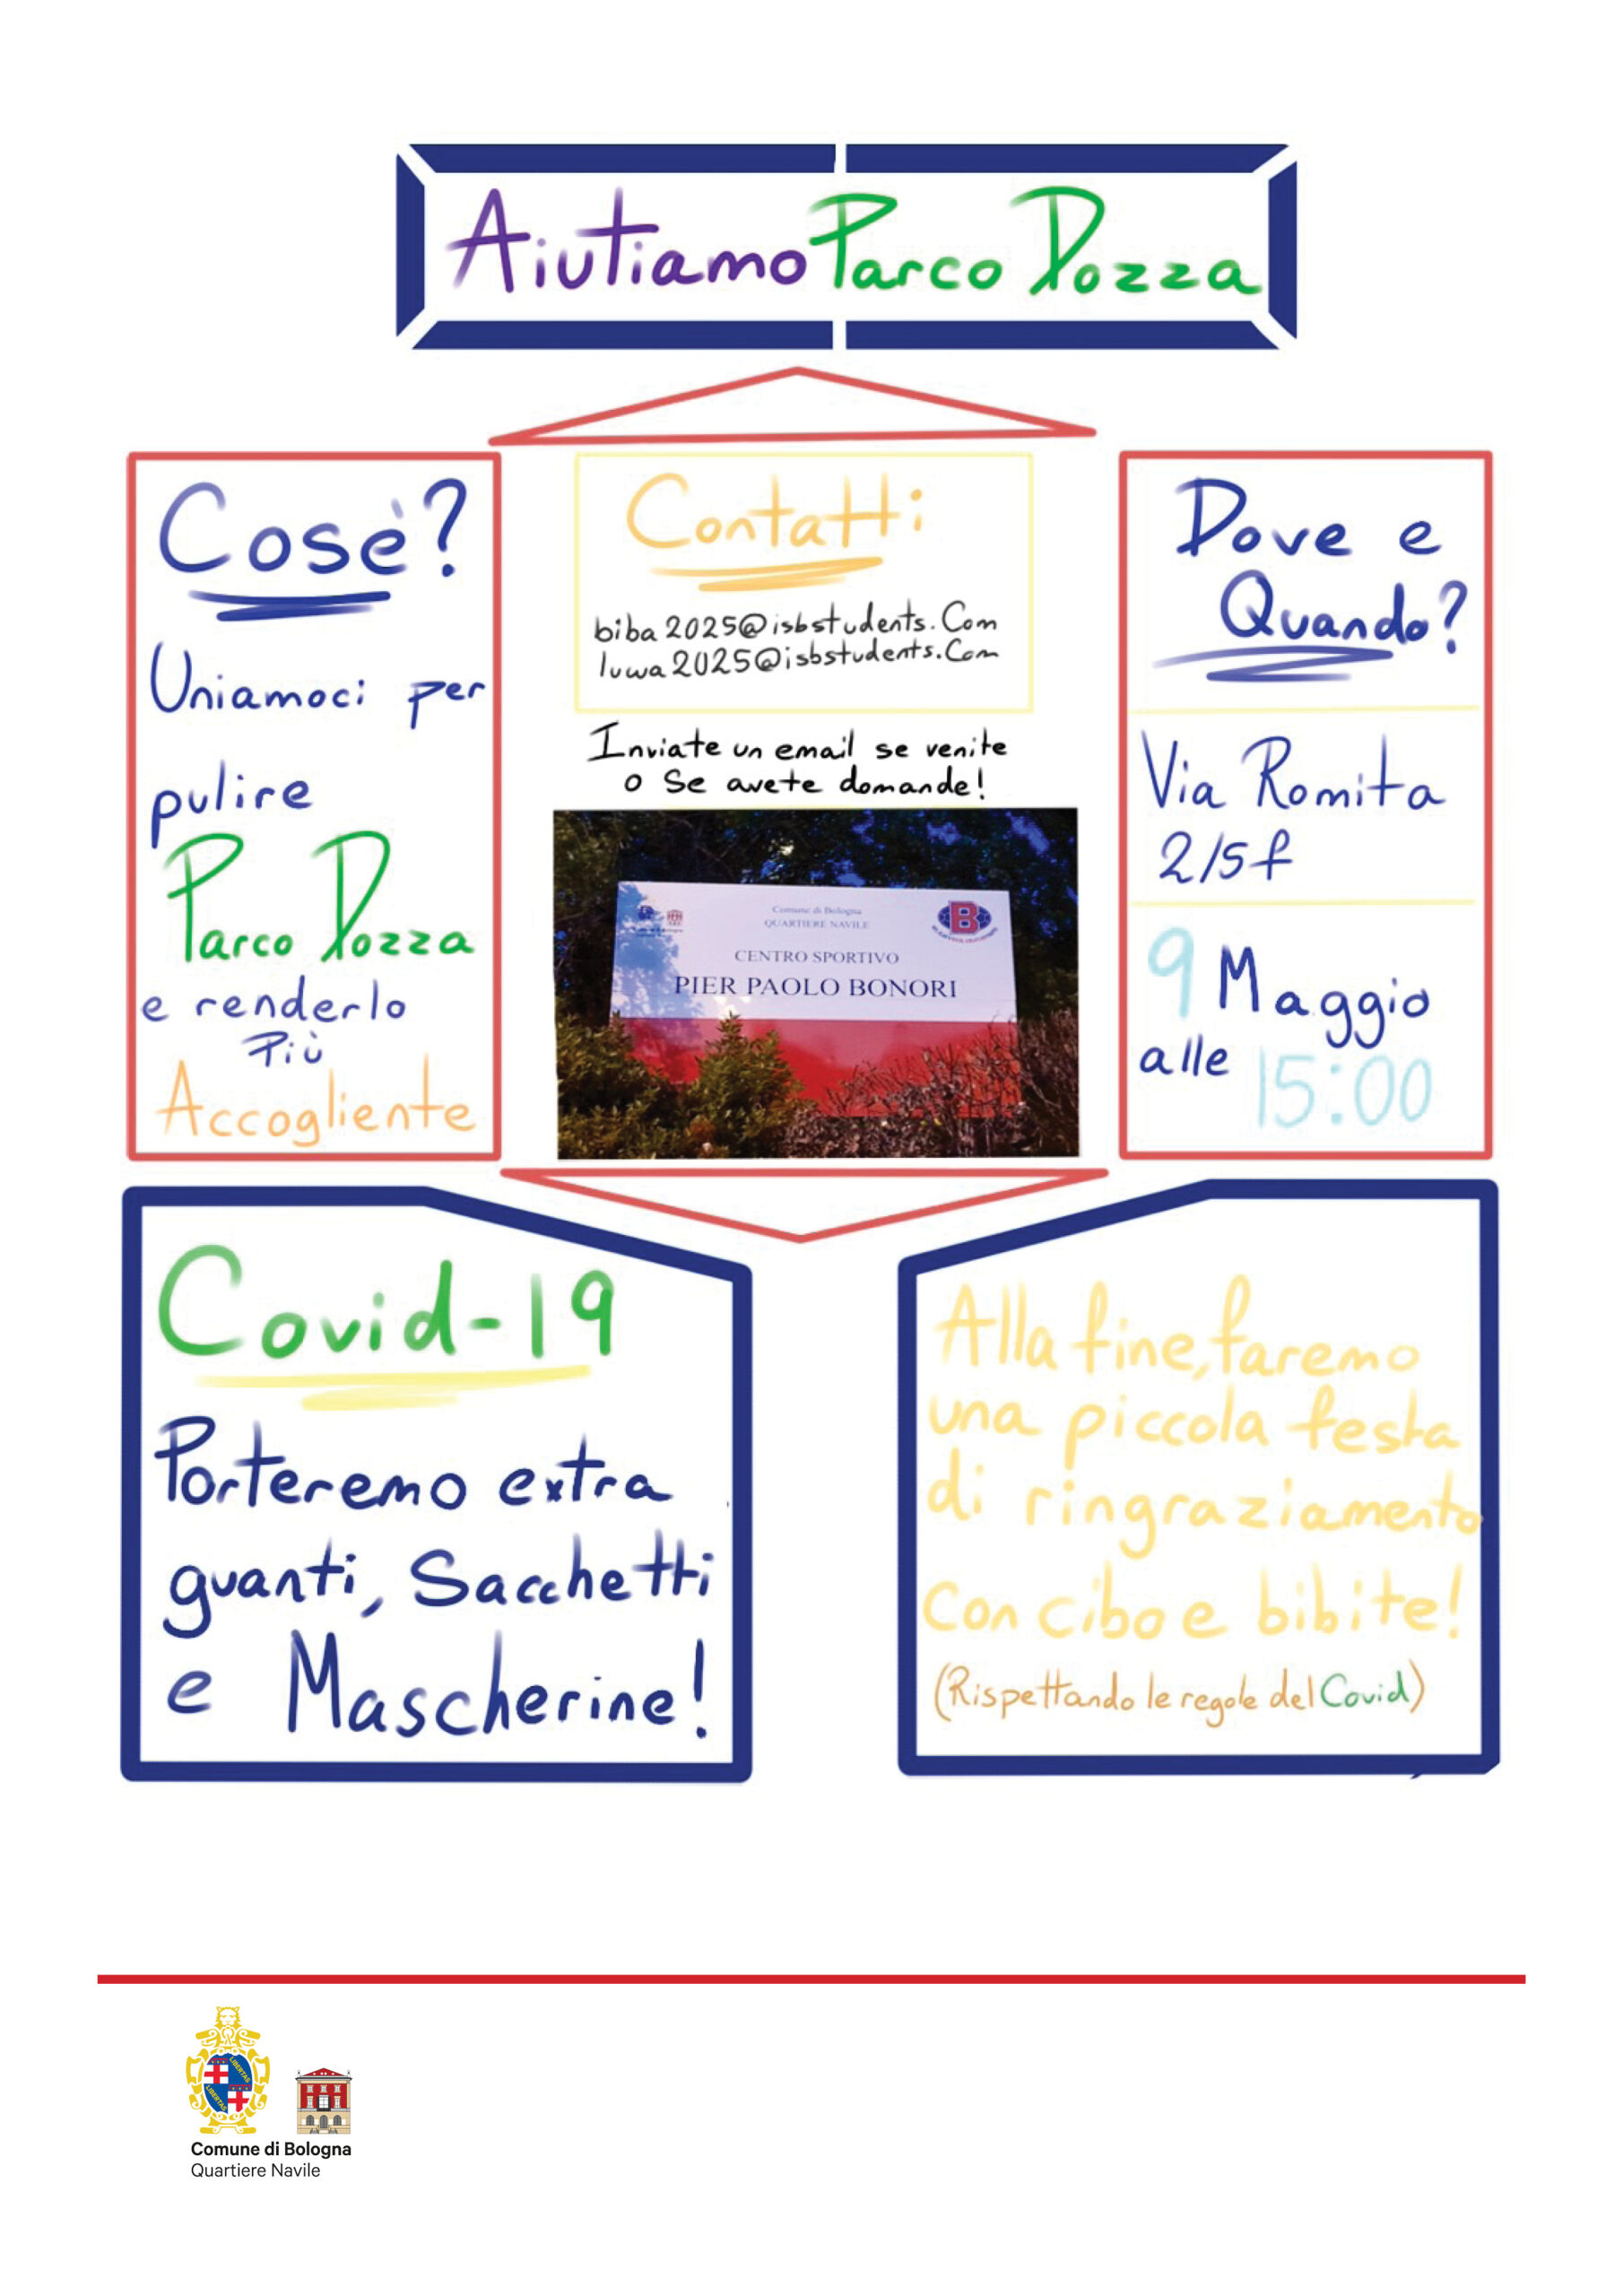 Aiutiamo Parco Dozza
Cosè?
Uniamoci per
pulire
Parco Dozza
e renderlo
Più
Accogliente
Contatti
biba2025@isbstudents.Com
luwa2025@isbstudents.Com
Inviate un email se venite
o Se avete domande!
Comune di Bologna
QUARTIERE NAVILE
CENTRO SPORTIVO
PIER PAOLO BONORI
B
Dove e
Quando?
Via Romita
2/5f
9 Maggio
alle 15:00
Covid-19
Porteremo extra
guanti, Sacchetti
e Mascherine!
Alla fine, faremo
una piccola festa
di ringraziamento
Con cibo e bibite!
(Rispettando le regole del Covid)
LIBERTAS
LIBERTAS
Comune di Bologna
Quartiere Navile